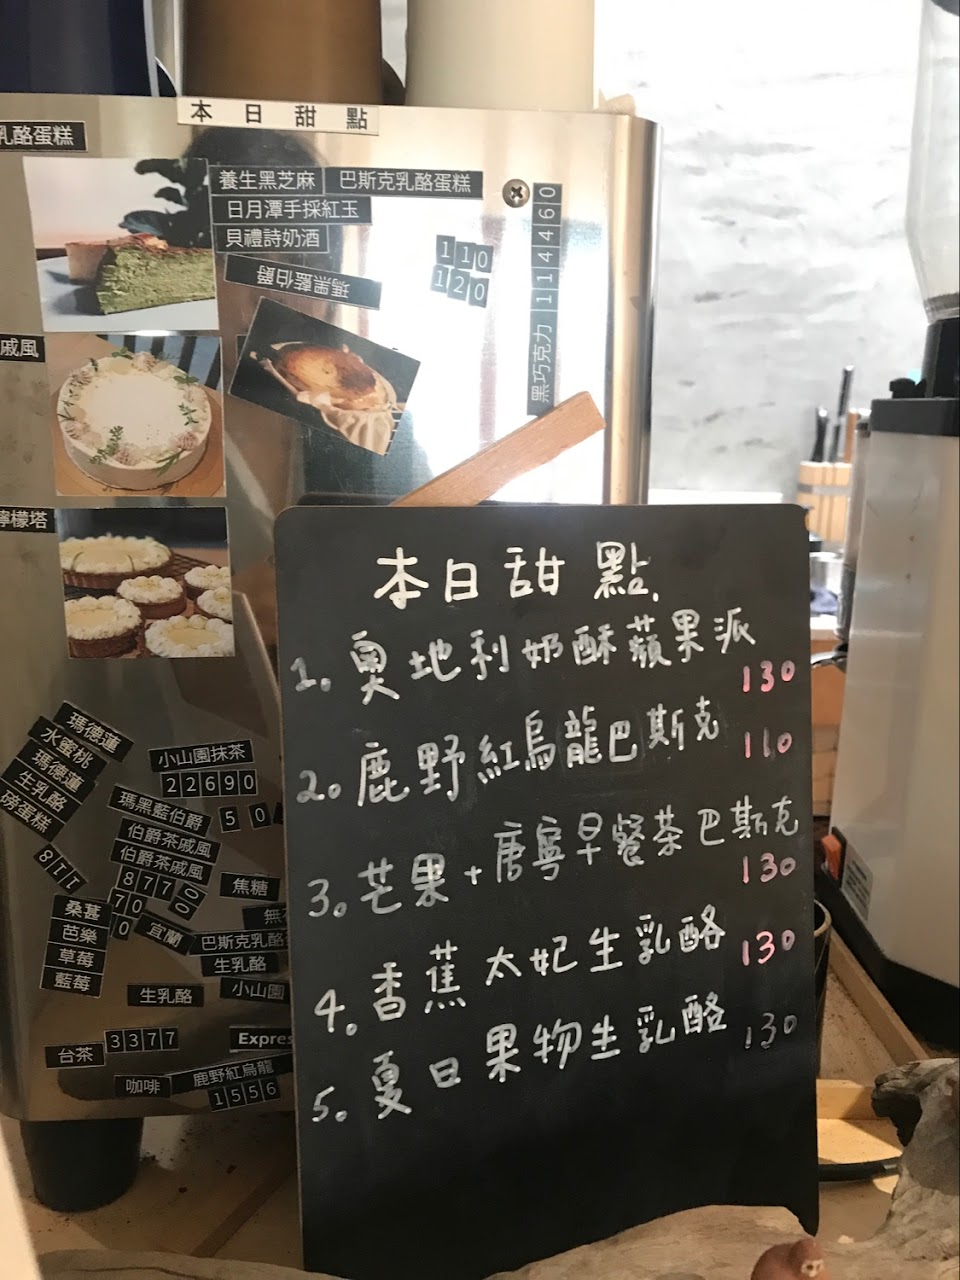 本日甜點
乳酪蛋糕
養生黑芝麻 巴斯克乳酪蛋糕
日月潭手採紅玉
貝禮詩奶酒
110
120
瑪黑藍伯爵
黑巧克力 114460
戚風
檸檬塔
本日甜點
1。奧地利奶酥蘋果派
130
2。鹿野紅烏龍巴斯克
110
3。芒果+唐寧早餐茶巴斯克
130
4。香蕉太妃生乳酪
130
5。夏日果物生乳酪
130
瑪德蓮
水蜜桃
瑪德蓮
生乳酪
磅蛋糕
小山園抹茶
22690
瑪黑藍伯爵
50
伯爵茶戚風
伯爵茶戚風
8770
70
0
焦糖
桑葚
芭樂
草莓
藍莓
宜蘭
巴斯克乳酪
生乳酪
生乳酪
小山園
台茶
3377
Expres
咖啡
鹿野紅烏龍
1556